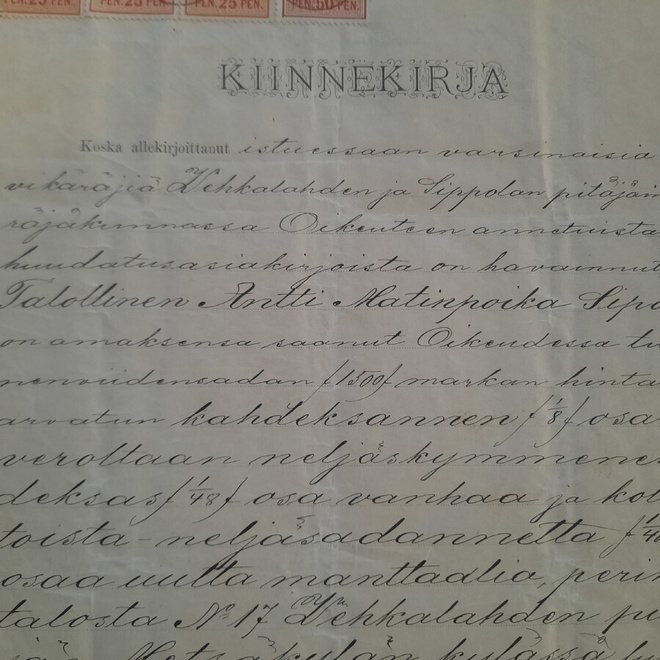 PEN. 25 PEN. PEN. 25 PEN. PEN. 50 PEN.
KIINNEKIRJA
Koska allekirjoittanut istuessaan varsinaisia
vikäräjiä Vehkalahden ja Sippolan pitäjäin
räjäkunnassa Oikeuteen annetuista
huudatusasiakirjoista on havainnut
Talollinen Antti Matinpoika Sipo
on omaksensa saanut Oikeudessa tu
nenviidensadan /1500/ markan hinta
arvatun kahdeksannen /1/8/ osa
verottaan neljäskymmene
deksas /1/48/ osa vanhaa ja kol
toista-neljäsadannetta /1/4
osaa uutta manttaalia, perin
talosta No 17 Vehkalahden pi
jän Metsäkylän kylässä